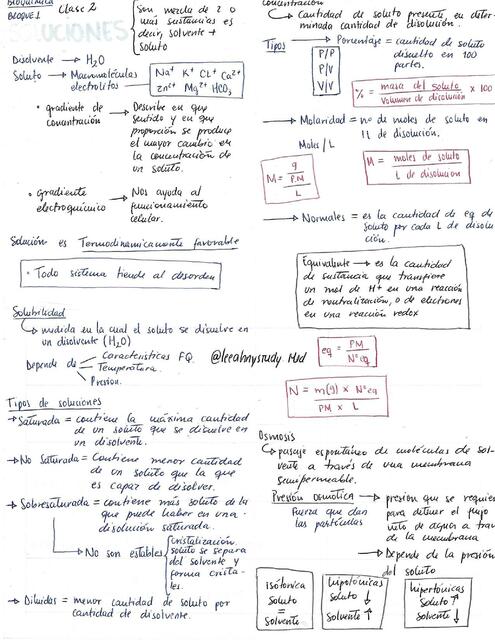 BIOQUÍMICA
BLOQUE 1
Clase 2
SOLUCIONES
Son mezcla de 2 o
más sustancias es
decir, solvente +
soluto
Disolvente → H2O
Soluto → Macromoléculas
electrolitos
Na+ K+ CL+ Ca2+
Zn2+ Mg2+ HCO3
• gradiente de
concentración
→ Describe en que
sentido y en que
proporción se produce
el mayor cambio en
la concentración de
un soluto.
• gradiente
electroquímico
→ Nos ayuda al
funcionamiento
celular.
Solución es Termodinamicamente favorable
• Todo sistema tiende al desorden
Solubilidad
↳ medida en la cual el soluto se disuelve en
un disolvente (H2O)
Depende de
Características FQ.
Temperatura.
Presion.
@leeahnystudy Md
Tipos de soluciones
→ Saturada = contiene la máxima cantidad
de un soluto que se disuelve en
un disolvente.
→ No Saturada = Contiene menor cantidad
de un soluto que la que
es capaz de disolver.
→ Sobresaturada = contiene más soluto de la
que puede haber en una
disolución saturada.
→ No son estables
cristalización.
soluto se separa
del solvente y
forma crista-
les.
→ Diluidas = menor cantidad de soluto por
cantidad de disolvente.
concentración
↳ Cantidad de soluto presente en deter-
minada cantidad de disolución.
Tipos → Porcentaje = cantidad de soluto
disuelto en 100
partes.
P/P
P/V
V/V
% = masa del soluto / volumen de disolución x 100
→ Molaridad = nº de moles de soluto en
1L de disolución.
Moles / L
M = g / P.M / L
M = moles de soluto / L de disolucion
→ Normales = es la cantidad de eq de
soluto por cada L de disolu
ción.
Equivalente → es la cantidad
de sustancia que transfiere
un mol de H+ en una reacción
de neutralización, o de electrones
en una reacción redox
eq = PM / Nºeq
N = m(g) x Nºeq / PM x L
Osmosis
↳ pasaje espontáneo de moléculas de sol-
vente a través de una membrana
semipermeable.
Presión osmótica → presión que se requiere
para detener el flujo
neto de agua a través
de la membrana
Fuerza que dan
las partículas
→ Depende de la presión
del soluto
isotónica
Soluto
=
Solvente
hipotónicas
Soluto ↓
Solvente ↑
hipertónicas
Soluto ↑
Solvente ↓